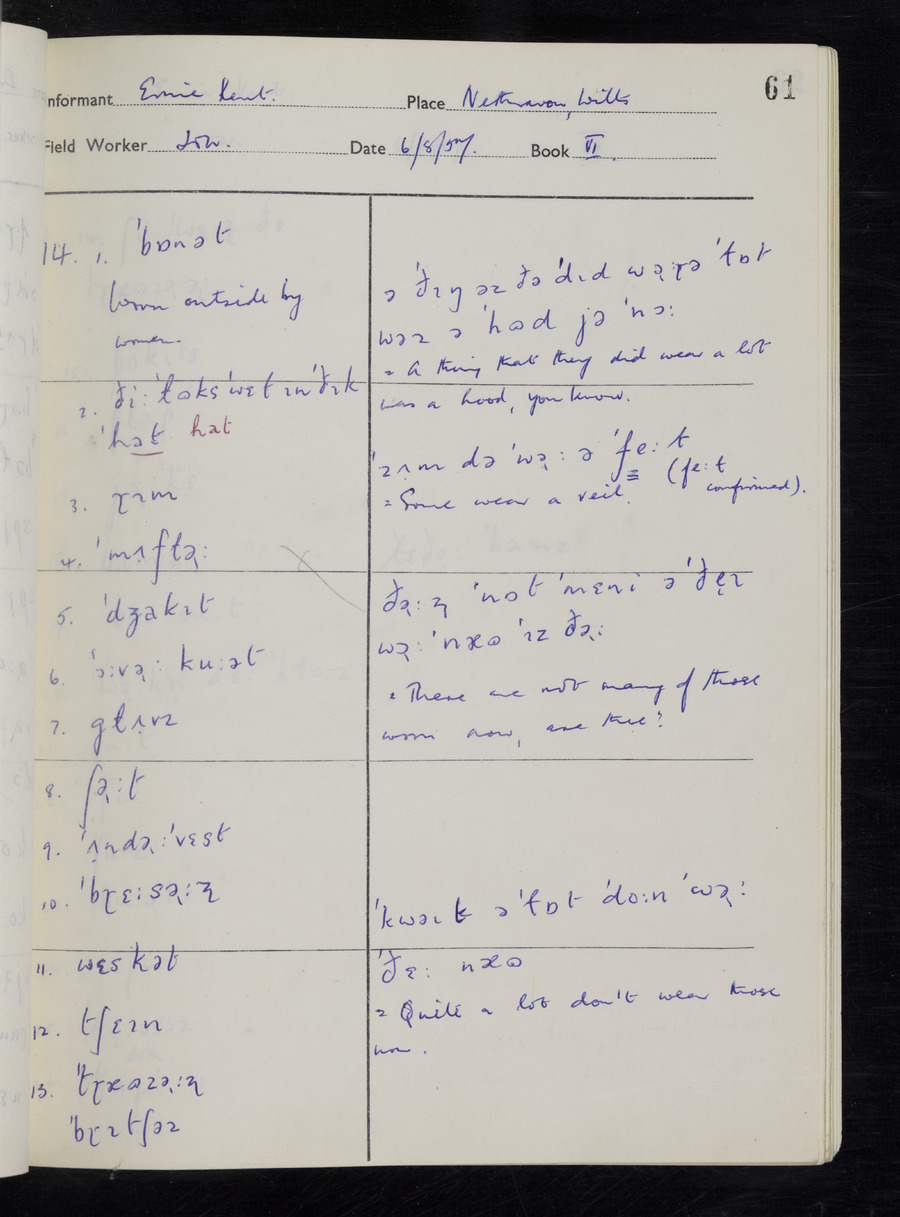 61
Informant Ernie Kent. Place Netheravon, Wilts
Field Worker Date 6/8/57. Book VI.
14. 1. ˈbɒnət
worn outside by
women.
2. ði: ˈtɒks ˈwɛt ɪn ˈðɪk
ˈhat hat
3. ɽɪm
4. ˈmʌftə˞:
5. ˈdʒakɪt
6. ˈɔ:və˞: ku:ət
7. glʌvz
8. ʃə˞:t
9. ˈʌndə˞:ˈvɛst
10. ˈbɽɛ:sə˞:ʐ
11. wɛskət
12. tʃɛɪn
13. ˈtɽæʊzə˞:ʐ
ˈbɽɪtʃəz
ə ˈðɪŋ əz ðə ˈdɪd wə˞:ɽə ˈlɒt
wəz ə ˈhʊd jə ˈnɔ:
= A thing that they did wear a lot
was a hood, you know.
ˈzʌm də ˈwə˞: ə ˈfe:l (fe:l
confirmed).
= Some wear a veil.
ðə˞:ʐ ˈnɒt ˈmɛni ə ˈðɛɪ
wə˞: ˈnæʊ ˈɪz ðə˞:
= There are not many of those
worn now, are there?
ˈkwəɪt ə ˈlɒt ˈdo:n ˈwə˞:
ˈðɛ: næʊ
= Quite a lot don't wear those
now.